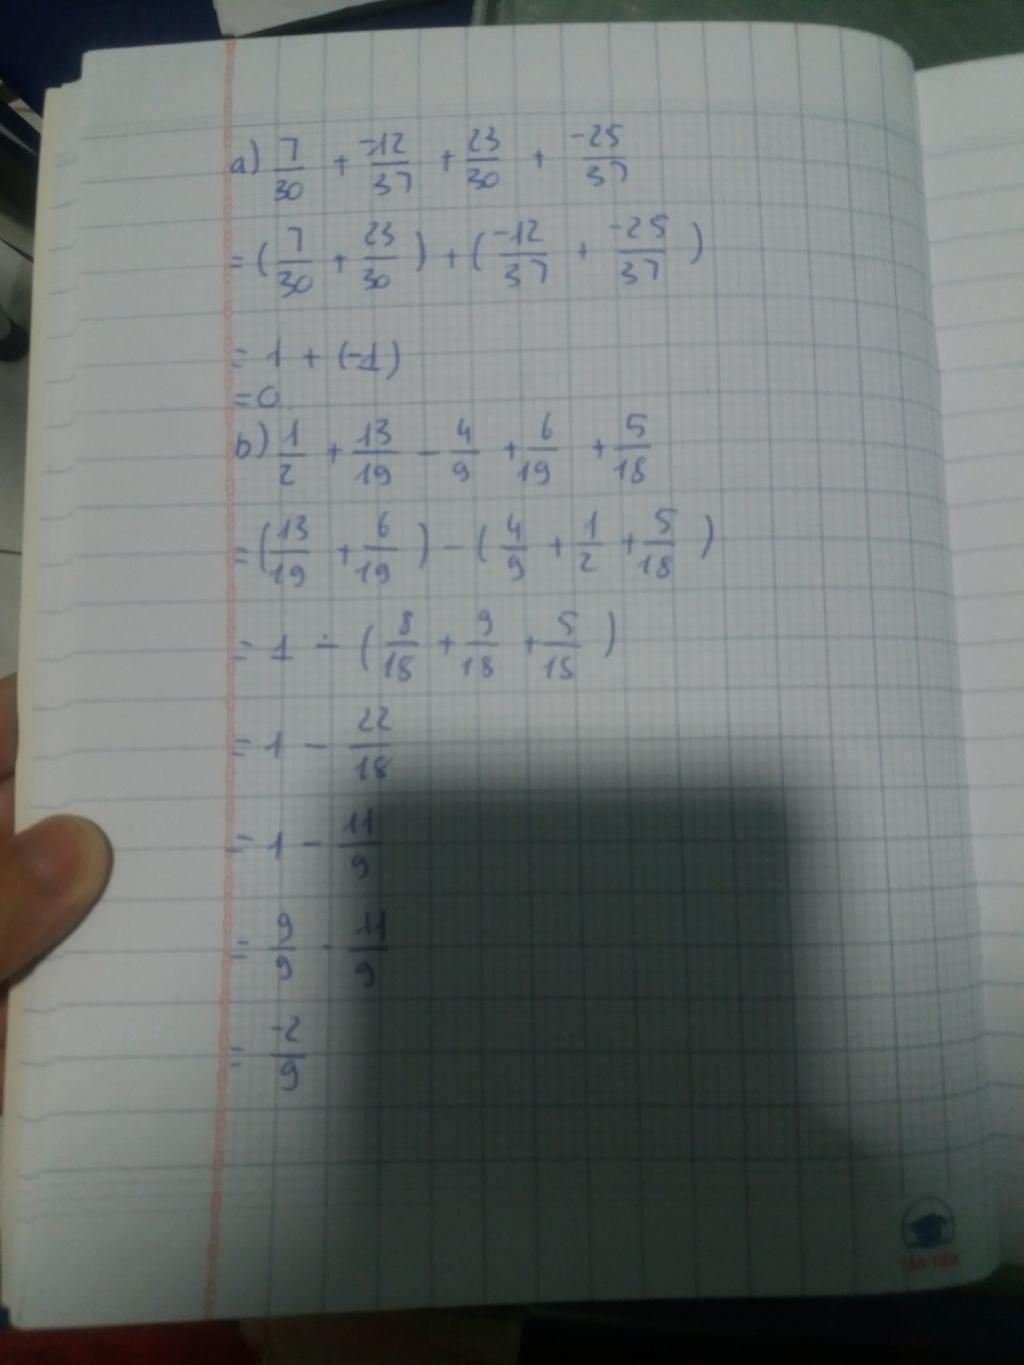 a) 7/30 + -12/37 + 23/30 + -25/37
= (7/30 + 23/30) + (-12/37 + -25/37)
= 1 + (-1)
= 0
b) 1/2 + 13/19 - 4/9 + 6/19 + 5/18
= (13/19 + 6/19) - (4/9 + 1/2 + 5/18)
= 1 - (8/18 + 9/18 + 5/18)
= 1 - 22/18
= 1 - 11/9
= 9/9 - 11/9
= -2/9
TÂN TIẾN